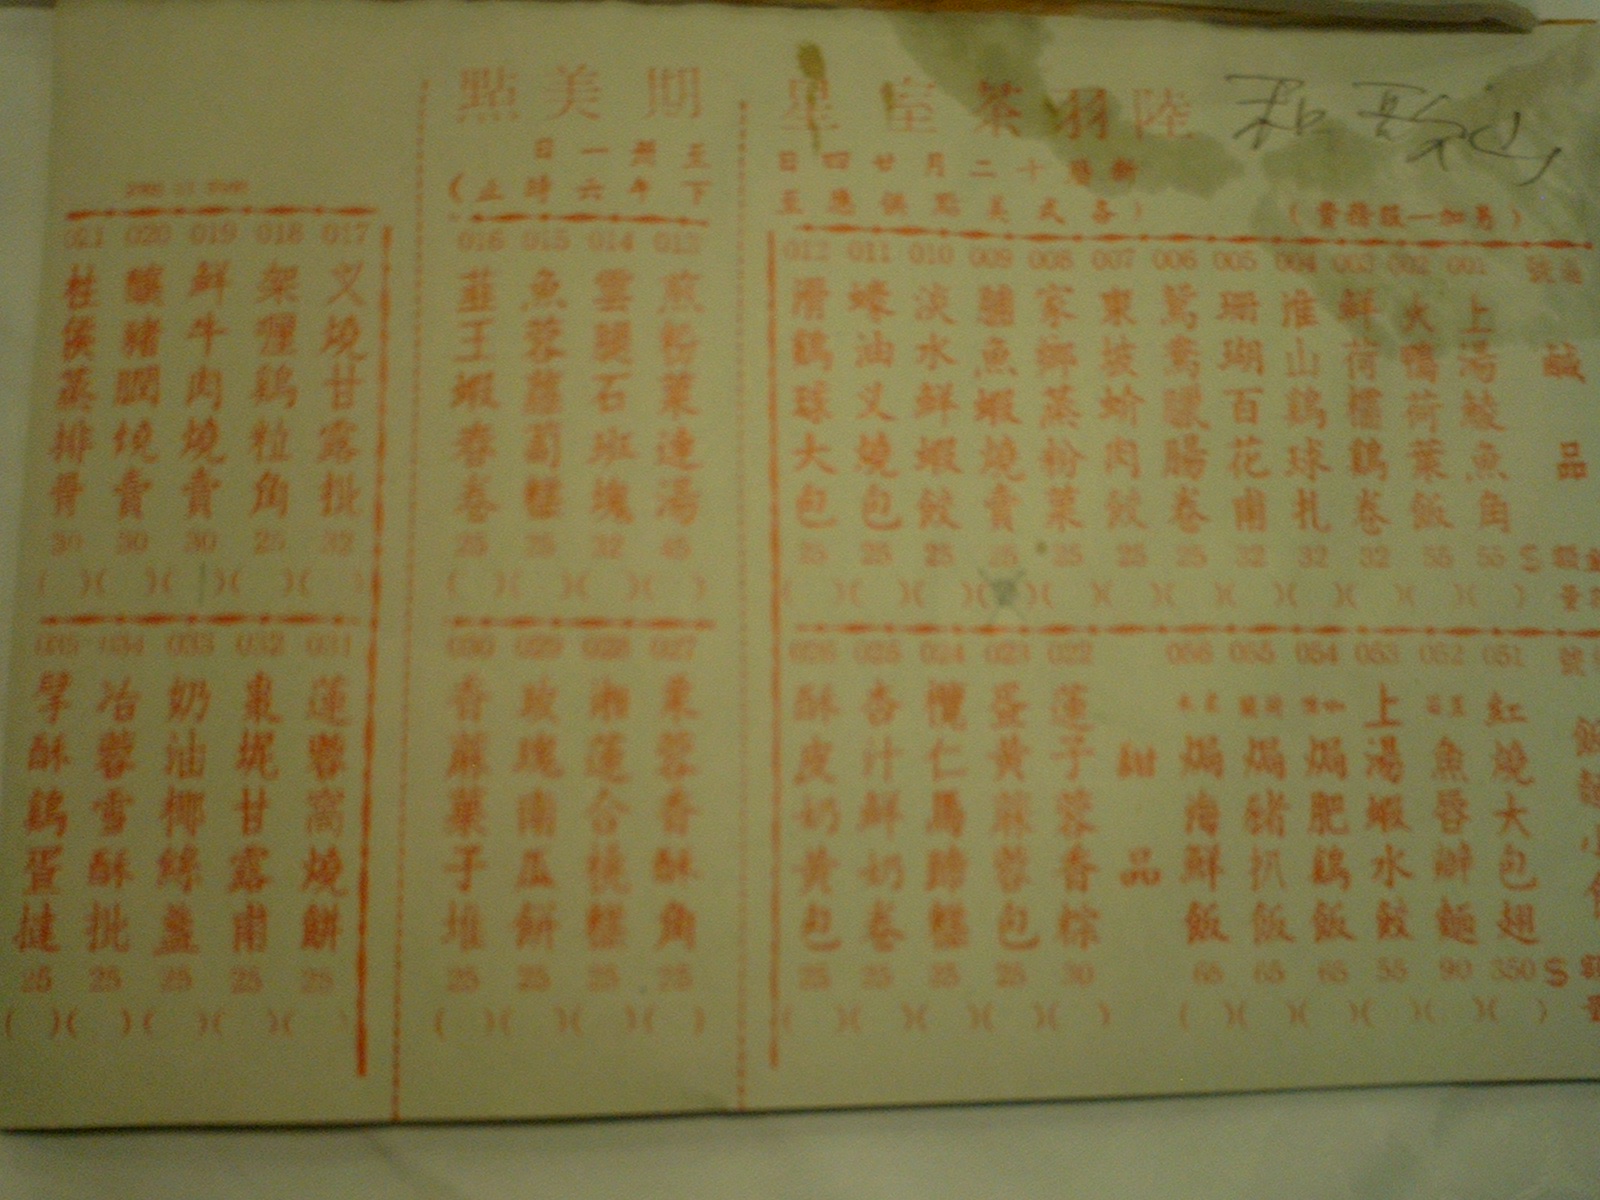 和歌山
陸羽茶室星期美點
新曆十二月廿四日至卅一日
(各式美點供應至下午六時止)
鹹品
001 上湯鮫魚角 55
002 火鴨荷葉飯 55
003 鮮荷欖鷄卷 32
004 淮山鷄球札 32
005 珊瑚百花甫 32
006 鴛鴦臘腸卷 25
007 東坡蚧肉餃 25
008 家鄉蒸粉菓 25
009 魚蝦燒賣
010 淡水鮮蝦餃 25
011 蠔油义燒包 25
012 滑鷄球大包 25
013 煎粉菓連湯 45
014 雲腿石班塊 32
015 魚蓉蘿蔔糕 25
016 韮王蝦春卷 25
017 义燒甘露批 32
018 架喱鷄粒角 25
019 鮮牛肉燒賣 30
020 釀豬膶燒賣 30
021 桂侯蒸排骨 30
051 紅燒大包翅 350
052 魚唇辦麵 90
053 上湯蝦水餃 55
054 焗肥鷄飯 65
055 焗豬扒飯 65
056 焗海鮮飯 65
甜品
022 蓮子蓉香粽 30
023 蛋黃蔴蓉包 25
024 欖仁馬蹄糕 25
025 杏汁鮮奶卷 25
026 酥皮奶黃包 25
027 蓉香酥角 25
028 湘蓮合桃糕 25
029 玫瑰南瓜餅 25
030 香蔴菓子堆 25
031 蓮蓉窩燒餅 25
032 棗坭甘露甫 25
033 奶油椰絲盞 25
034 冶蓉雪酥批 25
035 擘酥鷄蛋撻 25